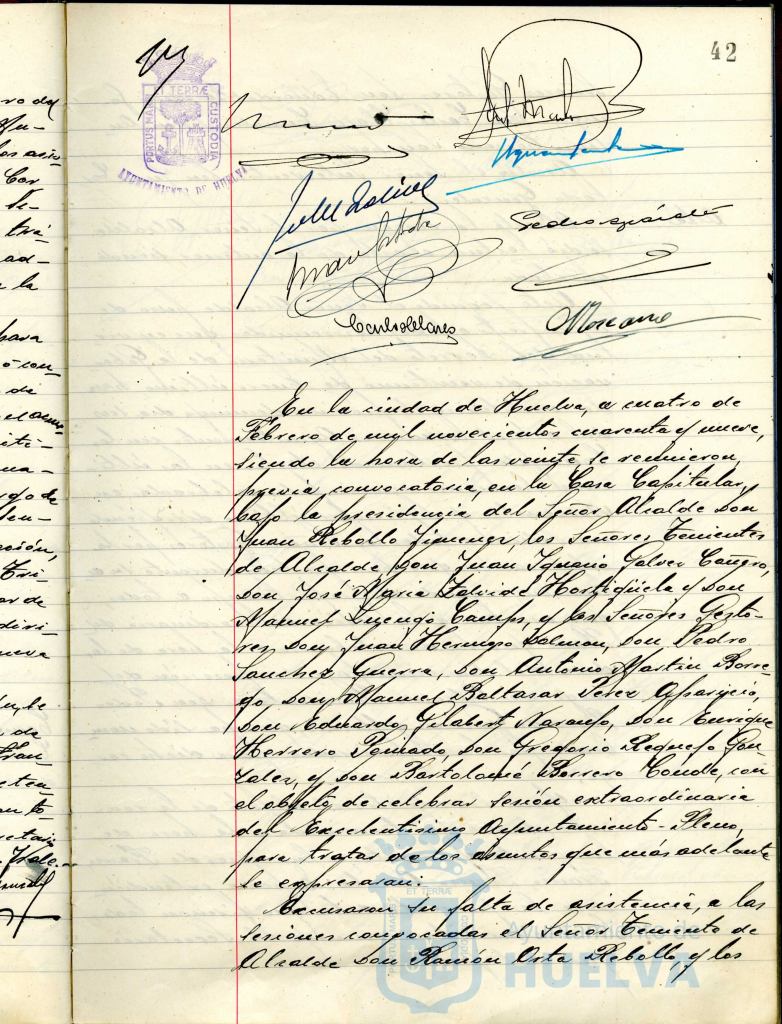 42
PORTUS MARIS ET TERRAE CUSTODIA
AYUNTAMIENTO DE HUELVA
En la ciudad de Huelva, a cuatro de
Febrero de mil novecientos cuarenta y nueve,
siendo la hora de las veinte, se reunieron,
previa convocatoria, en la Casa Capitular,
bajo la presidencia del Señor Alcalde Don
Juan Rebollo Jimenez, los Señores Tenientes
de Alcalde Don Juan Ignacio Galvez Cañero,
Don José María Zalvide Hortigüela y Don
Manuel Luengo Camps, y los Señores Gesto-
res Don Juan Hermoso Dolmon, Don Pedro
Sanchez Guerra, Don Antonio Martin Borre-
go, Don Manuel Baltasar Perez Aparicio,
Don Eduardo Gilabert Naranjo, Don Enrique
Herrero Peinado, Don Gregorio Requejo Gon
zalez, y Don Bartolomé Borrero Conde, con
el objeto de celebrar sesión extraordinaria
del Excelentísimo Ayuntamiento-Pleno,
para tratar de los asuntos que más adelante
se expresaran.
Excusaron su falta de asistencia, a las
sesiones convocadas el Señor Teniente de
Alcalde Don Ramón Orta Rebollo, y los
Ayuntamiento de
HUELVA